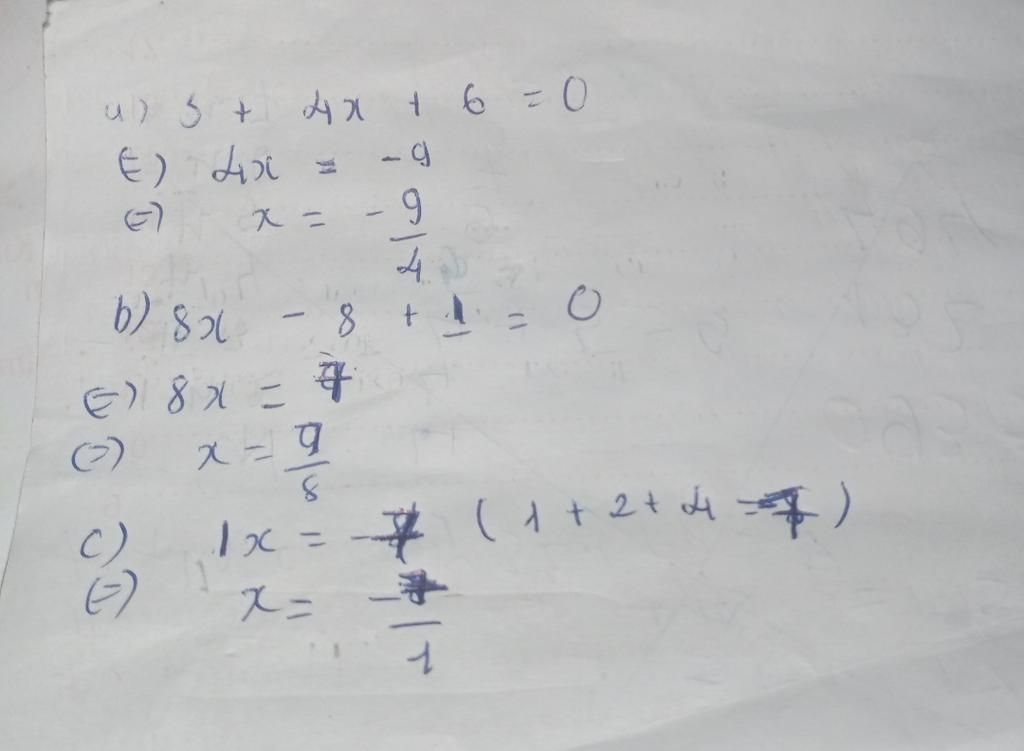 a) 3 + 4x + 6 = 0
⇔) 4x = -9
⇔) x = - 9/4
b) 8x - 8 + 1 = 0
⇔) 8x = 7
⇔) x = 9/8
c) 1x = -7 ( 1 + 2 + 4 = 7 )
⇔) x = -7/1